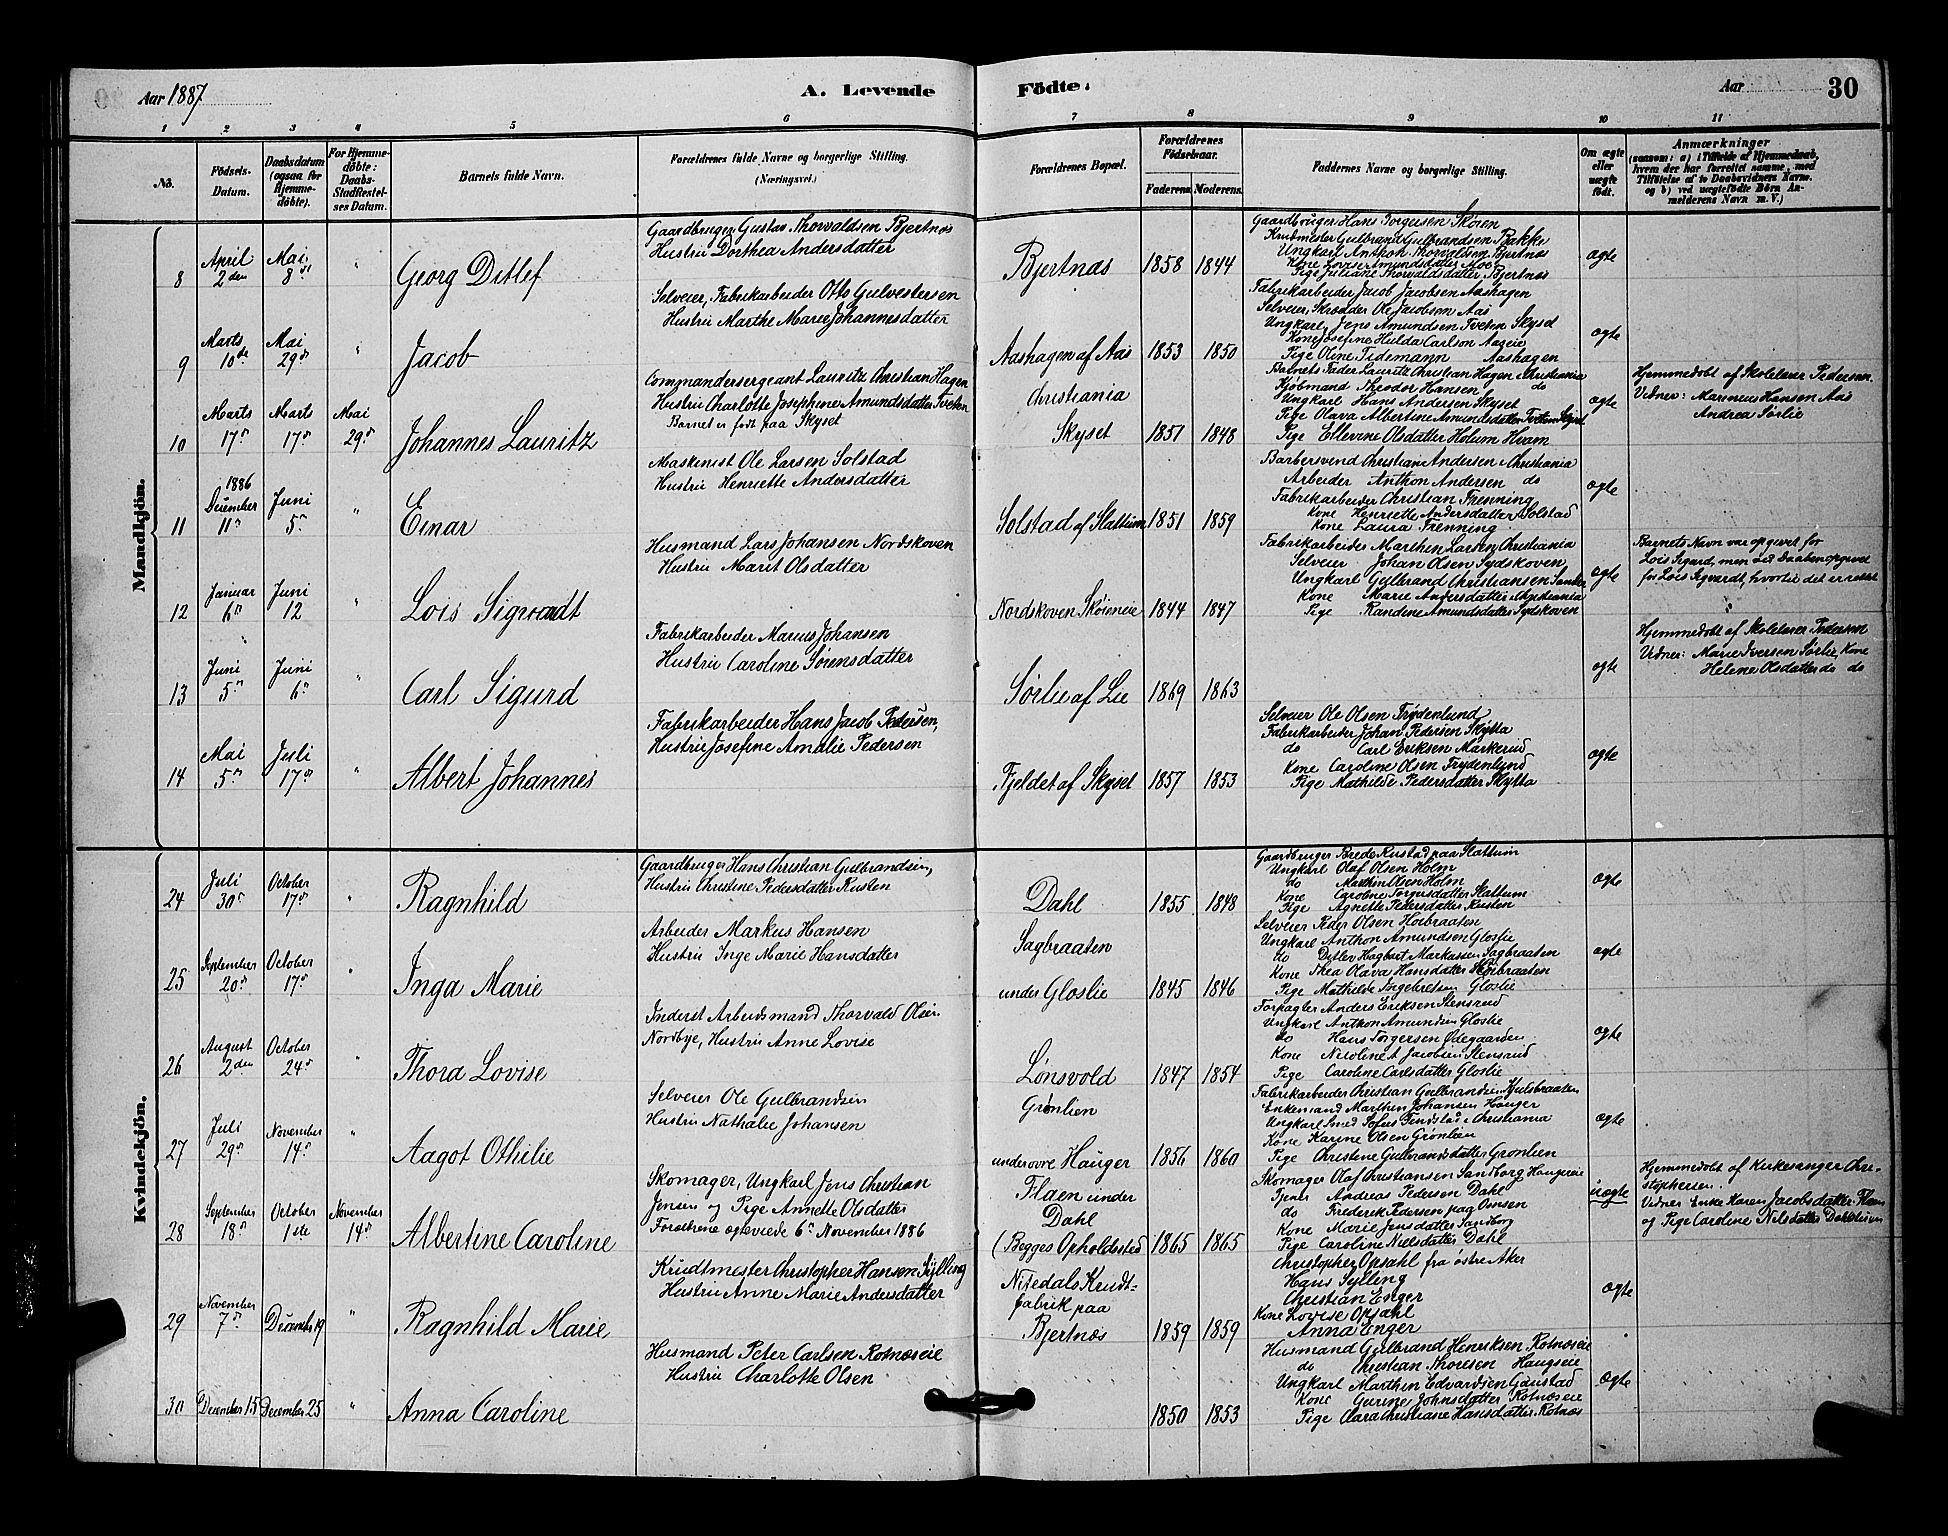 Aar 1887
A. Levende Födte.
Aar
30
1 2 3 4 5 6 7 8 9 10 11
No.
Födsels-Datum.
Daabsdatum (ogsaa for Hjemmedöbte).
For Hjemmedöbte: Daabs-Stadfæstelses Datum.
Barnets fulde Navn.
Forældrenes fulde Navne og borgerlige Stilling. (Næringsvei.)
Forældrenes Bopæl.
Forældrenes Födselsaar.
Faderens. Moderens.
Faddernes Navne og borgerlige Stilling.
Om ægte eller uægte födt.
Anmærkninger
(saasom: a) i Tilfælde af Hjemmedaab, hvem der har forrettet samme, med Tilföielse af to Daabsvidners Navne. og b) ved uægtefödte Börn Anmelderens Navn m. V.)
Mandkjön.
8 April 2den Mai 8de " Georg Ditlef
Gaardbruger Gustav Thorvaldsen Bjertnæs
Hustru Dorthea Andersdatter
Bjertnæs 1858 1844
Gaardbruger Hans Torgersen Skøien
Krudmester Gulbrand Gulbrandsen Bakke
Ungkarl Anthon Thorvaldsen Bjertnæs
Kone Lovise Amundsdatter Moe
Pige Juliane Thorvaldsdatter Bjertnæs
ægte
9 Marts 10de Mai 29de " Jacob
Selveier, Fabrikarbeider Otto Gulvestersen
Hustru Marthe Marie Johannesdatter
Aashagen af Aas 1853 1850
Fabrikarbeider Jacob Jacobsen Aashagen
Selveier Skrædder Ole Jacobsen Aas
Ungkarl Jens Amundsen Tveten Skyset
Kone Josefine Hulda Carlson Aaseie
Pige Oline Tidemann Aashagen
ægte
10 Marts 17de Marts 17de Mai 29de Johannes Lauritz
Commandersergeant Lauritz Christian Hagen
Hustru Charlotte Josephine Amundsdatter Tveten
Barnet er født paa Skyset
Christiania
Skyset 1851 1848
Barnets Fader Lauritz Christian Hagen Christiania
Kjøbmand Theodor Hansen do
Ungkarl Hans Andersen Skyset
Pige Olava Albertine Amundsdatter Tveten Skyset
Pige Ellevine Olsdatter Holum Hvam
ægte
Hjemmedøbt af Skolelærer Pedersen.
Vidner: Marinius Hansen Aas
Andrea Sørlie
11 1886 December 11de Juni 5de " Einar
Maskinist Ole Larsen Solstad
Hustru Henriette Andersdatter
Solstad af Slattum 1851 1859
Barbersvend Christian Andersen Christiania
Arbeider Anthon Andersen do
Fabrikarbeider Christian Frenning
Kone Henriette Andersdatter Solstad
Kone Laura Frenning
ægte
12 Januar 6de Juni 12 " Lois Sigvardt
Husmand Lars Johansen Nordskoven
Hustru Marit Olsdatter
Nordskoven Skøieneie 1844 1847
Fabrikarbeider Marthin Larsen Christiania
Selveier Johan Olsen Sydskoven
Ungkarl Gulbrand Christiansen
Kone Marie Andersdatter Christiania
Pige Randine Amundsdatter Sydskoven
ægte
Barnets Navn var opgivet for
Lois Sigurd, men ved Daaben opgivet
for Lois Sigvardt, hvortil det er rettet
13 Juni 5de Juni 6de " Carl Sigurd
Fabrikarbeider Marius Johansen
Hustru Caroline Sørensdatter
Sørlie af Lie 1869 1863
ægte
Hjemmedøbt af Skolelærer Pedersen
Vidner: Marie Iversen Sørlie, Kone
Helene Olsdatter do do
14 Mai 5de Juli 17de " Albert Johannes
Fabrikarbeider Hans Jacob Pedersen,
Hustru Josefine Amalie Pedersen
Fjeldet af Skyset 1857 1853
Selveier Ole Olsen Frydenlund
Fabrikarbeider Johan Pedersen Skytta
do Carl Eriksen Markerud
Kone Caroline Olsen Frydenlund
Pige Mathilde Pedersdatter Skytta
ægte
Kvindekjön.
24 Juli 30de October 17de " Ragnhild
Gaardbruger Hans Christian Gulbrandsen,
Hustru Christine Pedersdatter Rusten
Dahl 1855 1848
Gaardbruger Brede Rustad paa Slattum
Ungkarl Olaf Olsen Holm
do Marthin Olsen Holm
Kone Caroline Torgersdatter Slattum
Pige Agnette Pedersdatter Rusten
ægte
25 September 20de October 17de " Inga Marie
Arbeider Markus Hansen
Hustru Inge Marie Hansdatter
Sagbraaten
under Gloslie 1845 1846
Selveier Peder Olsen Høibraaten
Ungkarl Anthon Amundsen Gloslie
do Ditlev Hagbart Markussen Sagbraaten
Kone Thea Olava Hansdatter Høibraaten
Pige Mathilde Ingebretsen Gloslie
ægte
26 August 2den October 24de " Thora Lovise
Inderst Arbeidsmand Thorvald Olsen
Nordbye, Hustru Anne Lovise
Lønsvold 1847 1854
Forpagter Anders Eriksen Stensrud
Ungkarl Anthon Amundsen Gloslie
do Hans Torgersen Ødegaarden
Kone Nicoline A Jacobsen Stensrud
Pige Caroline Carlsdatter Gloslie
ægte
27 Juli 29de November 14de " Aagot Othilie
Selveier Ole Gulbrandsen
Hustru Nathalie Johansen
Grønlien
under øvre Hauger 1856 1860
Fabrikarbeider Christian Gulbrandsen Kjulsbraaten
Enkemand Marthin Johansen Hauger
Ungkarl Smed Sofus Tindstad Christiania
Kone Karine Olsen Grønlien
Pige Christine Gulbrandsdatter Grønlien
ægte
28 September 18de October 1ste November 14de Albertine Caroline
Skomager, Ungkarl Jens Christian
Jensen og Pige Annette Olsdatter
Forældrene ægteviede 6te November 1886
Flaen under
Dahl
(Begges Opholdssted 1865 1865
Skomager Olaf Christiansen Sandborg Haugereie
Tjener Andreas Pedersen Dahl
do Frederik Pedersen paa Omsen
Kone Marie Jensdatter Sandborg
Pige Caroline Nielsdatter Dahl
uægte
Hjemmedøbt af Kirkesanger Christophersen.
Vidner Enke Karen Jacobsdatter Flaen
og Pige Caroline Nilsdatter
29 November 7de December 19 " Ragnhild Marie
Krudtmester Christopher Hansen Sylling
Hustru Anne Marie Andersdatter
Nitedals Krudtfabrik paa
Bjertnæs 1859 1859
Christopher Opsahl fra østre Aker
Hans Sylling
Christian Enger
Kone Lovise Opsahl
Anna Enger
ægte
30 December 15 December 25 " Anna Caroline
Husmand Peter Carlsen Rotnæseie
Hustru Charlotte Olsen
1850 1853
Husmand Gulbrand Henriksen Rotnæseie
do Christian Thoresen Haugseie
Ungkarl Marthin Edvardsen Gaustad
Kone Gurine Johnsdatter Rotnæseie
Pige Clara Christiane Hansdatter Rotnæs
ægte